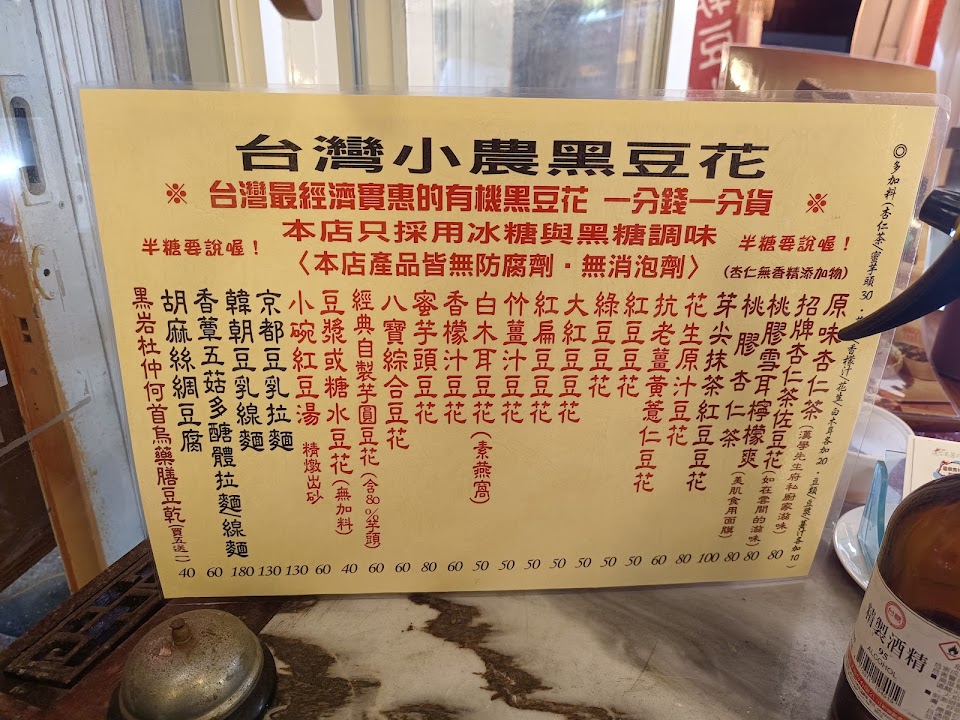 台灣小農黑豆花
※ 台灣最經濟實惠的有機黑豆花 一分錢一分貨 ※
半糖要說喔！
本店只採用冰糖與黑糖調味
半糖要說喔！
〈本店產品皆無防腐劑・無消泡劑〉
(杏仁無香精添加物)
◎多加料(杏仁茶/蜜芋頭30
香檬汁/花生/白木耳各加20・豆類/豆漿/薑汁各加10)
原味杏仁茶 80
招牌杏仁茶佐豆花(漢學先生府私廚家滋味) 80
桃膠雪耳檸檬爽(如在雲間的滋味) 80
桃膠杏仁茶(美肌食用面膜) 80
芽尖抹茶紅豆豆花 100
花生原汁豆花 80
抗老薑黃薏仁豆花 60
紅豆豆花 50
綠豆豆花 50
大紅豆豆花 50
紅扁豆豆花 50
竹薑汁豆花 50
白木耳豆花(素燕窩) 50
香檬汁豆花 60
蜜芋頭豆花 80
八寶綜合豆花 60
經典自製芋圓豆花(含80%芋頭) 60
豆漿或糖水豆花(無加料) 40
小碗紅豆湯 精燉出砂 60
京都豆乳拉麵 130
韓朝豆乳線麵 130
香蕈五菇多醣體拉麵線麵 180
胡麻絲綢豆腐 60
黑岩杜仲何首烏藥膳豆乾(買五送一) 40
精製酒精
95
ALCOHOL